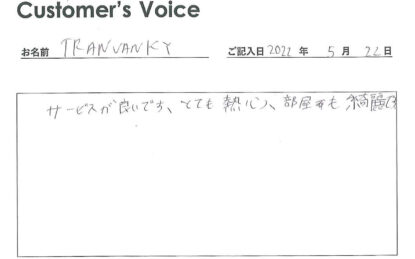 Customer's Voice
お名前 TRANVANKY ご記入日 2022 年 5 月 22 日
サービスが良いです、とても熱心、部屋も綺麗